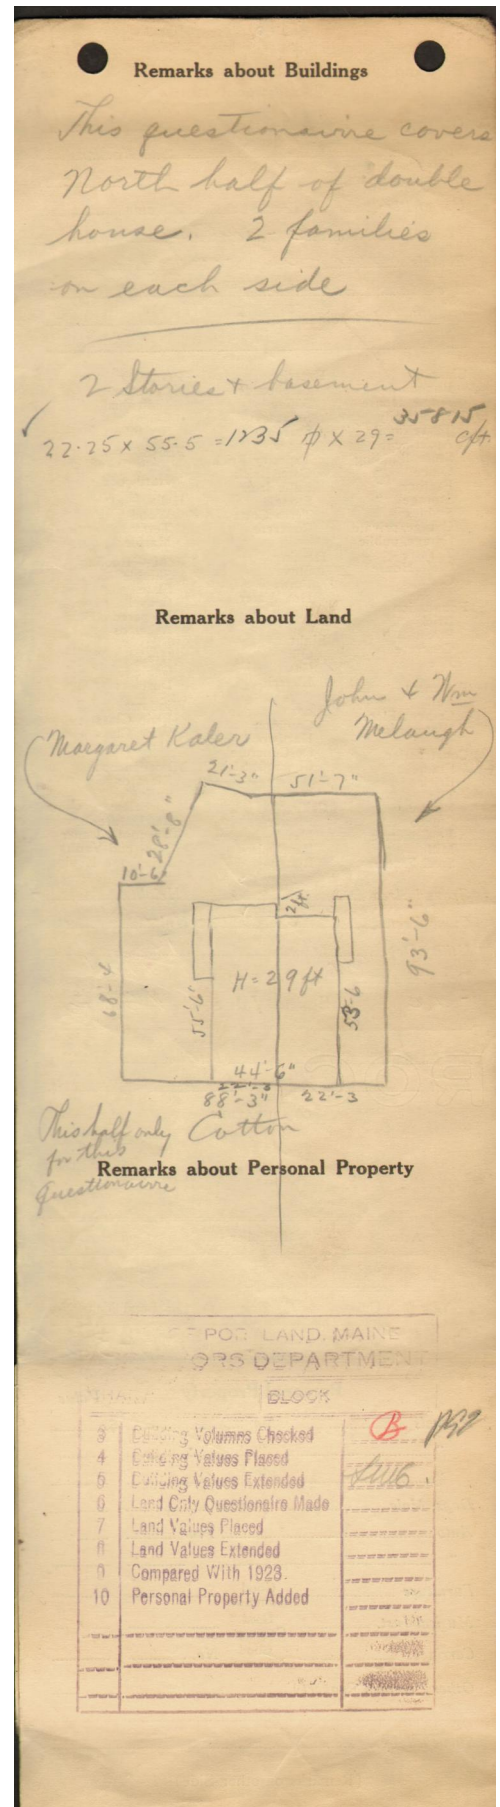 Remarks about Buildings
This questionaire covers
North half of double
house. 2 families
on each side
2 Stories + basement
22.25 x 55.5 = 1235 ⌀ x 29 = 35815 c/ft.
Remarks about Land
John & Wm
Melaugh
Margaret Kaler
21'-3"
51'-7"
28'-8"
10'-6
2ft.
93'-6"
68'-4
H = 29 ft
55'-6'
53-6
44'-6"
22'-3
88'-3"
22'-3
This half only
for this
Questionairre
Cotton
Remarks about Personal Property
PORTLAND, MAINE
ORS DEPARTMENT
BLOCK
3 Building Volumes Checked
4 Building Values Placed
5 Building Values Extended
6 Land Only Questionaire Made
7 Land Values Placed
8 Land Values Extended
9 Compared With 1923.
10 Personal Property Added